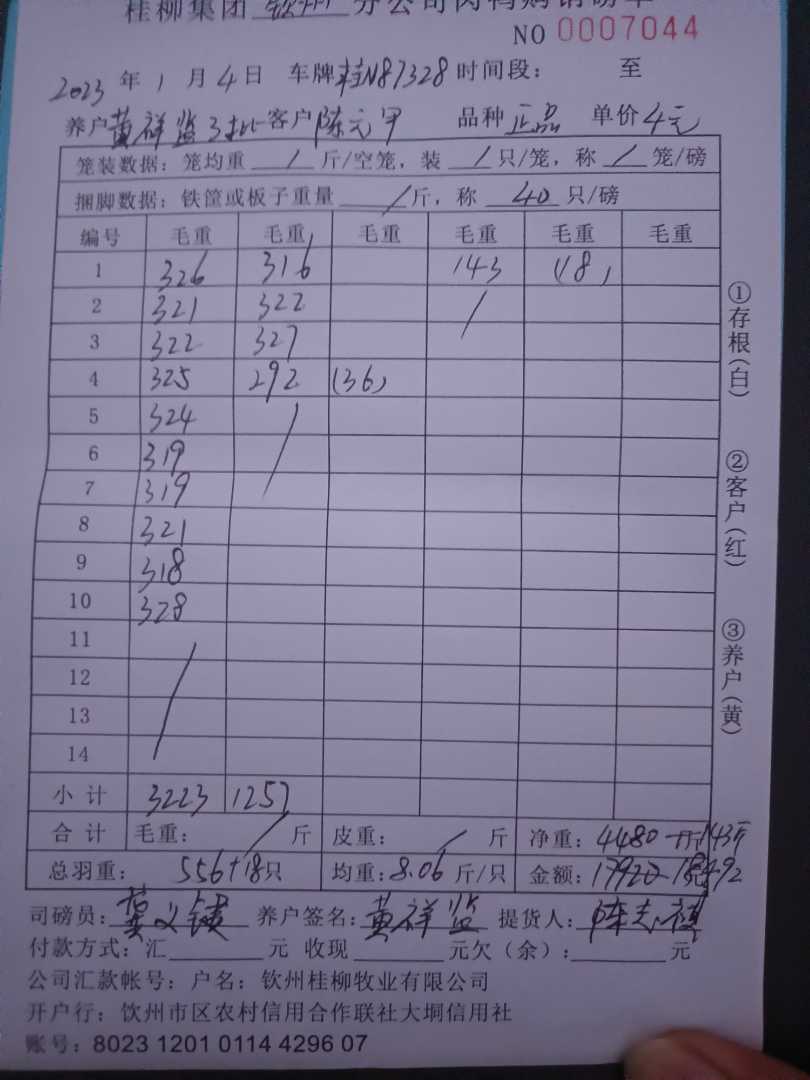 桂柳集团 钦州 分公司肉鸭购销磅单
NO 0007044
2023 年 1 月 4 日 车牌 桂N87328 时间段： 至
养户 黄祥监3批 客户 陈元甲 品种 正品 单价 4元
笼装数据：笼均重 / 斤/空笼，装 / 只/笼，称 / 笼/磅
捆脚数据：铁筐或板子重量 / 斤，称 40 只/磅
编号 毛重 毛重 毛重 毛重 毛重 毛重
1 326 316 143 (18)
2 321 322 /
3 322 327
4 325 292 (36)
5 324 /
6 319
7 319
8 321
9 318
10 328
11 /
12
13
14
小计 3223 1257
合计 毛重： / 斤 皮重： / 斤 净重：4480 斤 143斤
总羽重： 556+18只 均重：8.06 斤/只 金额：17920
司磅员： 养户签名：黄祥监 提货人：陈志祺
付款方式：汇 元 收现 元欠（余）： 元
公司汇款帐号：户名：钦州桂柳牧业有限公司
开户行：钦州市区农村信用合作联社大垌信用社
账号：8023 1201 0114 4296 07
①存根(白)
②客户(红)
③养户(黄)